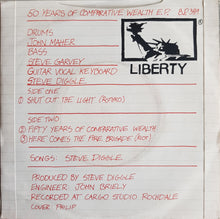 50 YEARS OF COMPARATIVE WEALTH E.P. BP 389
DRUMS
JOHN MAHER
BASS
STEVE GARVEY
GUITAR VOCAL KEYBOARD
STEVE DIGGLE.
LIBERTY
®
SIDE ONE
① SHUT OUT THE LIGHT
SIDE TWO
① FIFTY YEARS OF COMPARATIVE WEALTH
② HERE COMES THE FIRE BRIGADE
SONGS: STEVE DIGGLE.
PRODUCED BY STEVE DIGGLE
ENGINEER JOHN BRIELY
RECORDED AT CARGO STUDIO ROCHDALE
COVER PHILIP